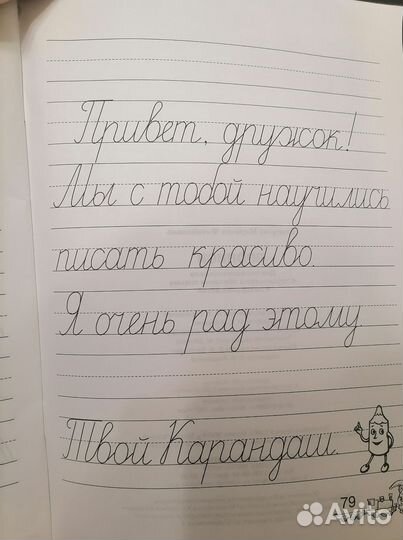 Привет, дружок!
Мы с тобой научились
писать красиво.
Я очень рад этому.
Твой Карандаш.
79
Avito